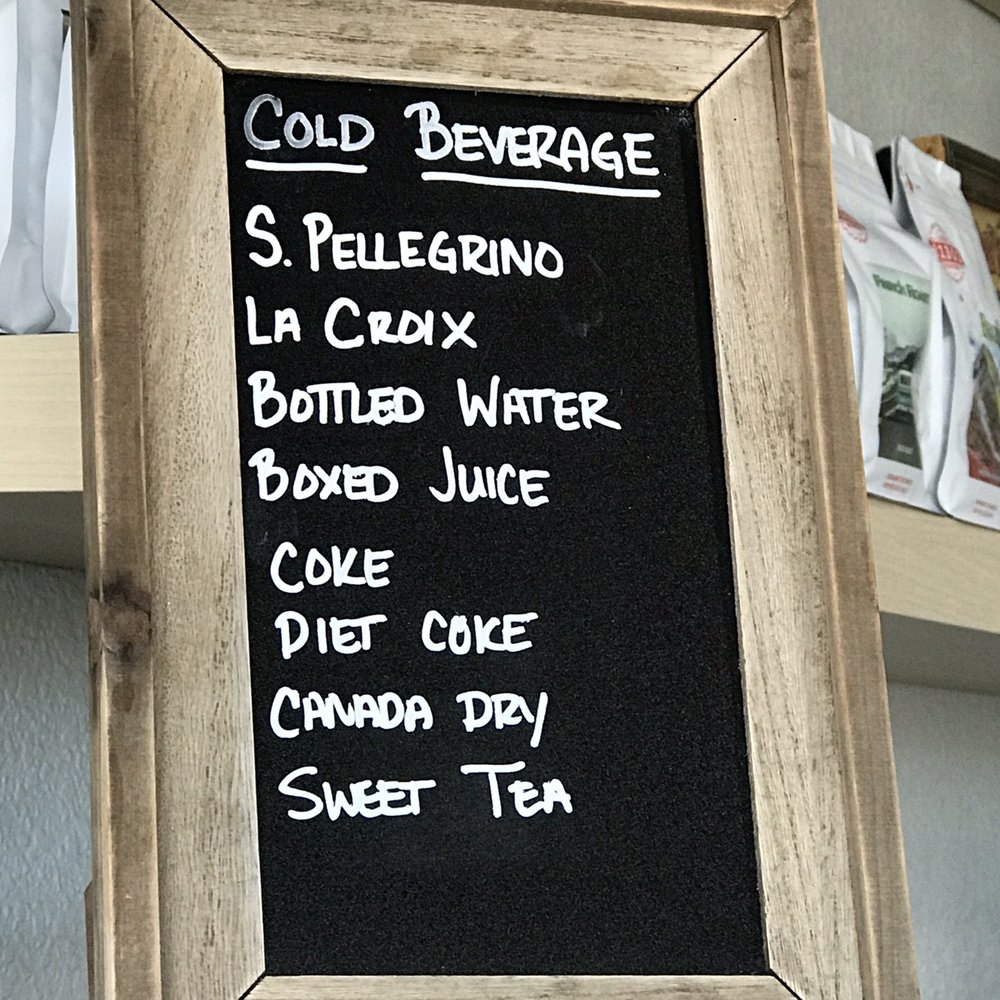 COLD BEVERAGE
S. PELLEGRINO
LA CROIX
BOTTLED WATER
BOXED JUICE
COKE
DIET COKE
CANADA DRY
SWEET TEA
French Roast